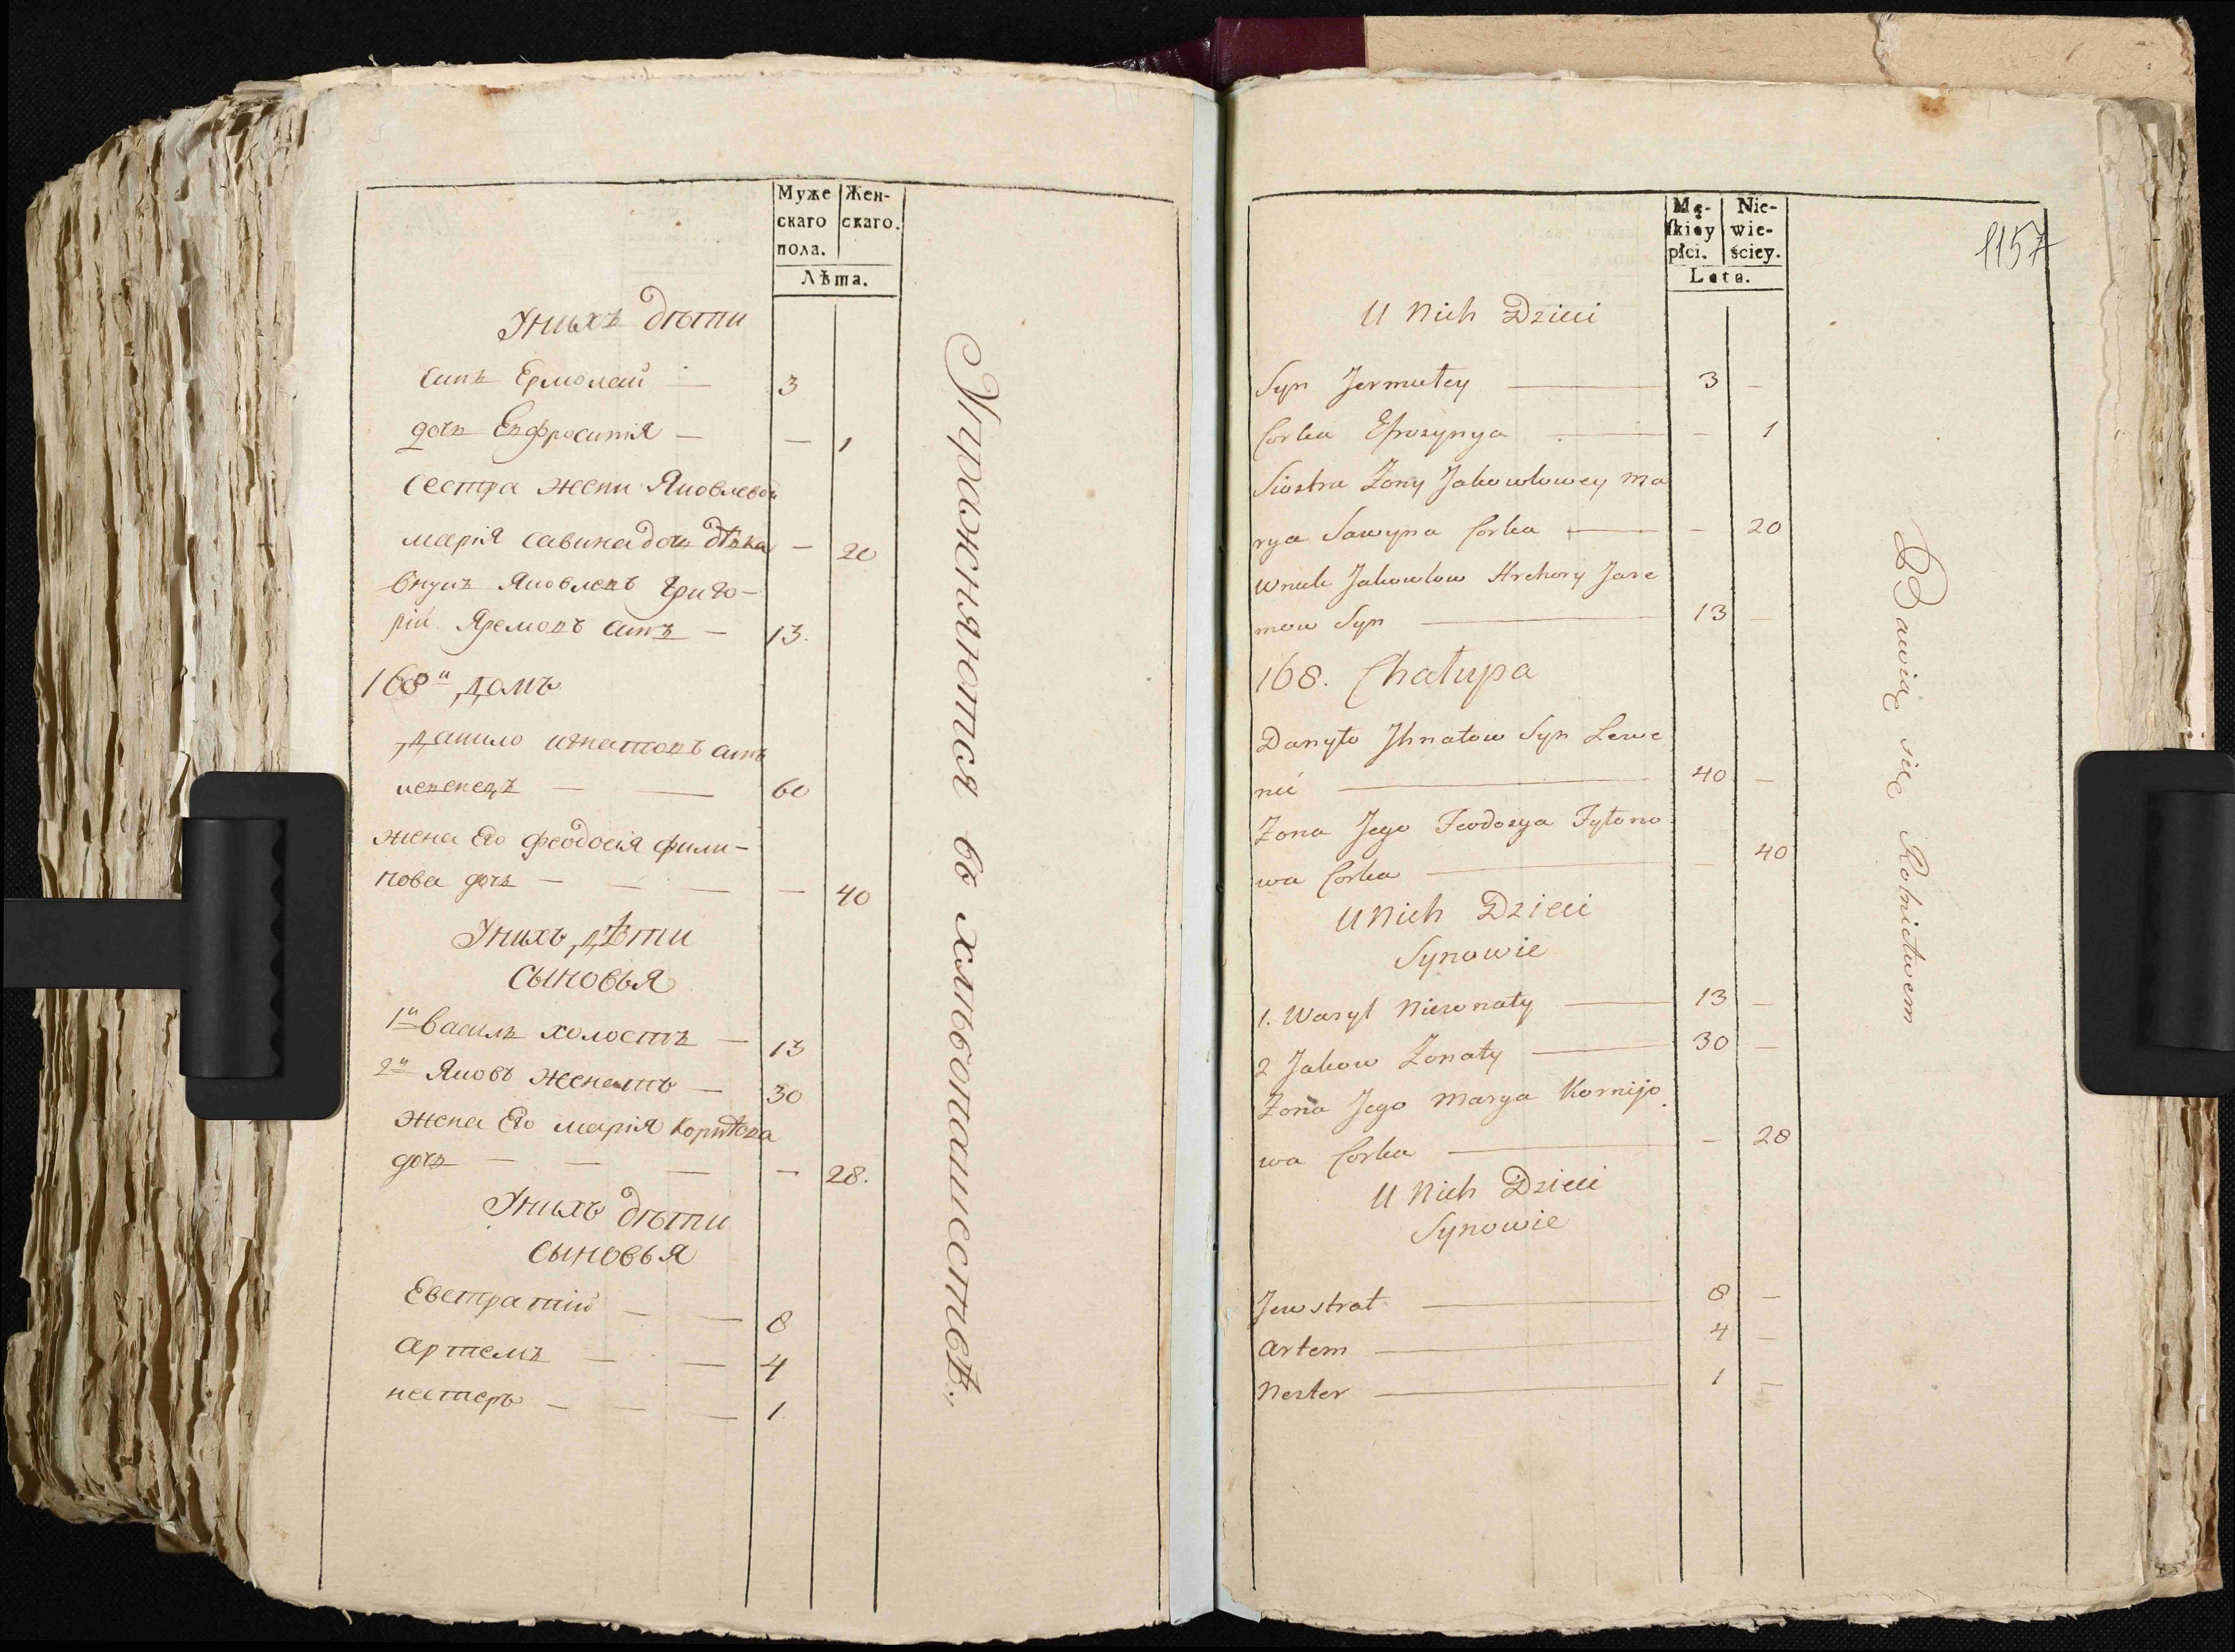 Муже
скаго
пола.
Жен-
скаго.
Лѣта.
Уныхъ дѣти
сынъ Ермолай — 3
дочь Евфросинія — — 1
сестра жены Яковлевой
марія савина дочь дѣвка — 20
внукъ Яковлевъ Григо-
рій Яремовъ сынъ — 13.
168й домъ
данило игнатовъ сынъ
левенецъ — — 60
жена Его феодосія фили-
пова дочь — — — — 40
Уныхъ дѣти
сыновья
1й василь холостъ — 13
2й Яковъ женатъ — 30
жена Его марія Корнѣева
дочь — — — — 28.
Уныхъ дѣти
сыновья
Евстратій — — 8
артемъ — — 4
нестеръ — — — 1
Упражняются въ хлѣбопашествѣ.
Mę-
skiey
płci.
Nie-
wie-
ściey.
Lata.
1157
U Nich Dzieci
Syn Jermułey — 3 —
Corka Efrozynya — — 1
Siostra Zony Jakowlowey Ma
rya Sawyna Corka — — 20
Wnuk Jakowlow Hrehory Jare
mow Syn — 13 —
168. Chałupa
Danyło Jhnatow Syn Lewe
nić — 40 —
Zona Jego Teodozya Fyłono
wa Corka — — 40
U Nich Dzieci
Synowie
1. Wasyl Niezonaty — 13 —
2 Jakow Zonaty — 30 —
Zona Jego Marya Kornijo
wa Corka — — 28
U Nich Dzieci
Synowie
Jewstrat — 8 —
Artem — 4 —
Nester — 1 —
Bawią się Rolnictwem